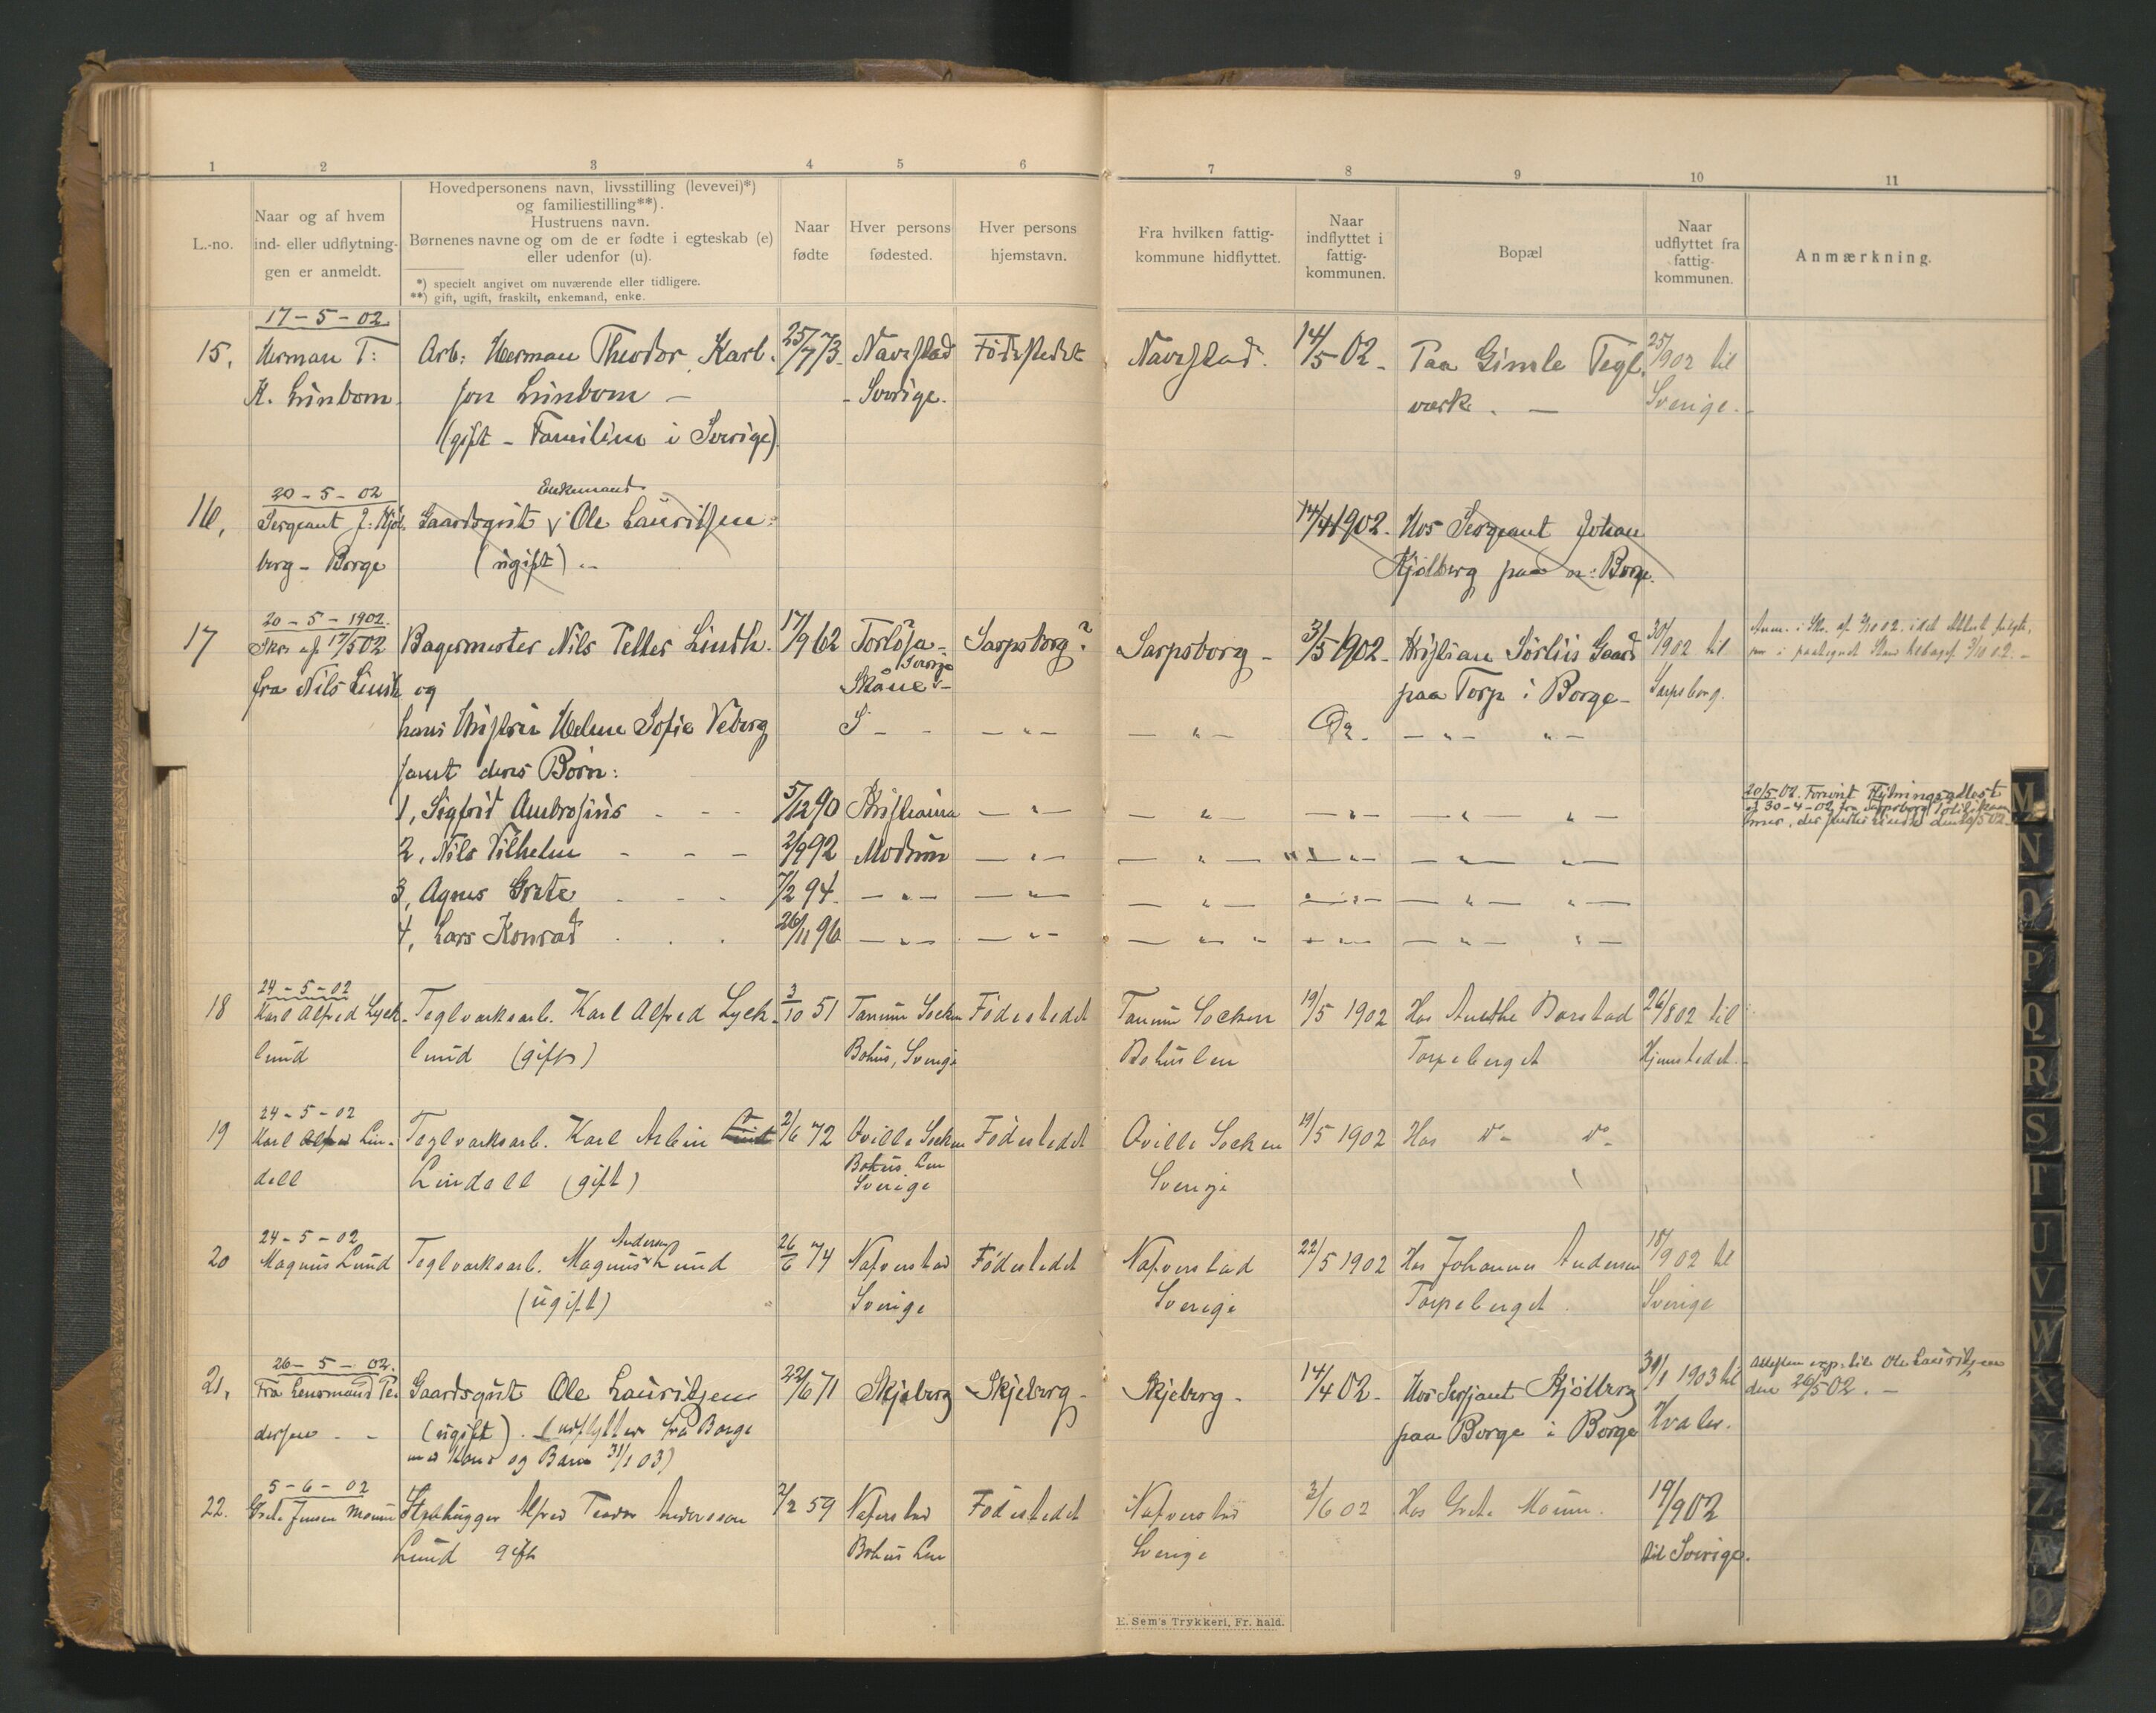 1 2 3 4 5 6 7 8 9 10 11
L.-no.
Naar og af hvem
ind- eller udflytnin-
gen er anmeldt.
Hovedpersonens navn, livsstilling (levevei)*)
og familiestilling**).
Hustruens navn.
Børnenes navne og om de er fødte i egteskab (e)
eller udenfor (u).
*) specielt angivet om nuværende eller tidligere.
**) gift, ugift, fraskilt, enkemand, enke.
Naar
fødte
Hver persons
fødested.
Hver persons
hjemstavn.
Fra hvilken fattig-
kommune hidflyttet.
Naar
indflyttet i
fattig-
kommunen.
Bopæl
Naar
udflyttet fra
fattig-
kommunen.
Anmærkning.
17-5-02
15, Herman T: Arb: Herman Theodor Karl- 25/7 73 Navestad Fødestedet Navestad. 14/5 02- Paa Gimle Tegl- 25/9 02 til
K. Linbom son Linbom - - Sverige. værk. - Sverige.
(gift - Familien i Sverige)
20-5-02 Enkemand
16, Sergeant J: Kjøl- Gaardsgut v Ole Lauritsen: 14/4 1902. Hos Sergeant Johan
berg - Borge (ugift) - Kjølberg paa Borge.
20-5-1902.
17 Skr. af 17/5 02 Bagermester Nils Petter Lindh. 17/9 62 Torlösa- Sarpsborg? Sarpsborg - 3/5 1902- Kristian Sørlies Gaard 30/9 02 til
fra Nils Lindh og Skåne Sverige paa Torp i Borge- Sarpsborg.
hans Hustru Helene Sofie Veberg S - - - " - - " - Do. - " - " -
samt deres Børn:
1, Sigfrid Ambrosius - - - 5/12 90 Kristiania - " - - " - - " - - " - " -
20/5-02. Forevist Flytningsattest
af 30-4-02 fra Sarpsborg Politikam
2, Nils Vilhelm - - - 2/9 92 Modum - " - - " - - " - - " - " -
3, Agnes Grete - - - 7/2 94. - " - - " - - " - - " - - " - " -
4, Lars Konrad . . . 26/11 96 - " - - " - - " - - " - - " - " -
24-5-02
18 Karl Alfred Lyck- Teglværksarb. Karl Alfred Lyck- 3/10 51 Tanum Socken Fødestedet Tanum Socken 19/5 1902 Hos Anethe Borstad 26/8 02 til
lund lund (gift) Bohus, Sverige Bohuslen Torpeberget Hjemstedet.
24-5-02
19 Karl Alfred Lin- Teglværksarb. Karl Albin 2/6 72 Qville Socken Fødestedet Qville Socken 19/5 1902 Hos do do
dell Lindell (gift) Bohus Len Sverige Sverige
24-5-02 Anderson
20 Magnus Lund Teglværksarb. Magnus Lund 26/6 74 Nafverstad Fødestedet Nafverstad 22/5 1902 Hos Johannes Andersen 18/9 02 til
(ugift) Sverige Sverige Torpeberget. Sverige
26-5-02.
21, Fra Lensmand Pe- Gaardsgut Ole Lauritsen 22/6 71 Skjeberg Skjeberg- Skjeberg- 14/4 02- Hos Serjant Kjølberg 31/1 1903 til Attesten exp. til Ole Lauritsen
dersen - - (ugift). (udflytter fra Borge paa Borge i Borge Hvaler. den 26/5 02. -
med Kone og Barn 31/1 03)
5-6-02
22. Grete Jensen Moum Stenhugger Alfred Teodor Andersson 2/2 59 Nafverstad Fødestedet Nafverstad 3/6 02 Hos Grete Moum. 19/9 02
Lund gift Bohus Len Sverige til Sverige.
E. Sem's Trykkeri, Fr. hald.
M
N
O
P
Q
R
S
T
U
V
W
X
Y
Z
Æ
Ø